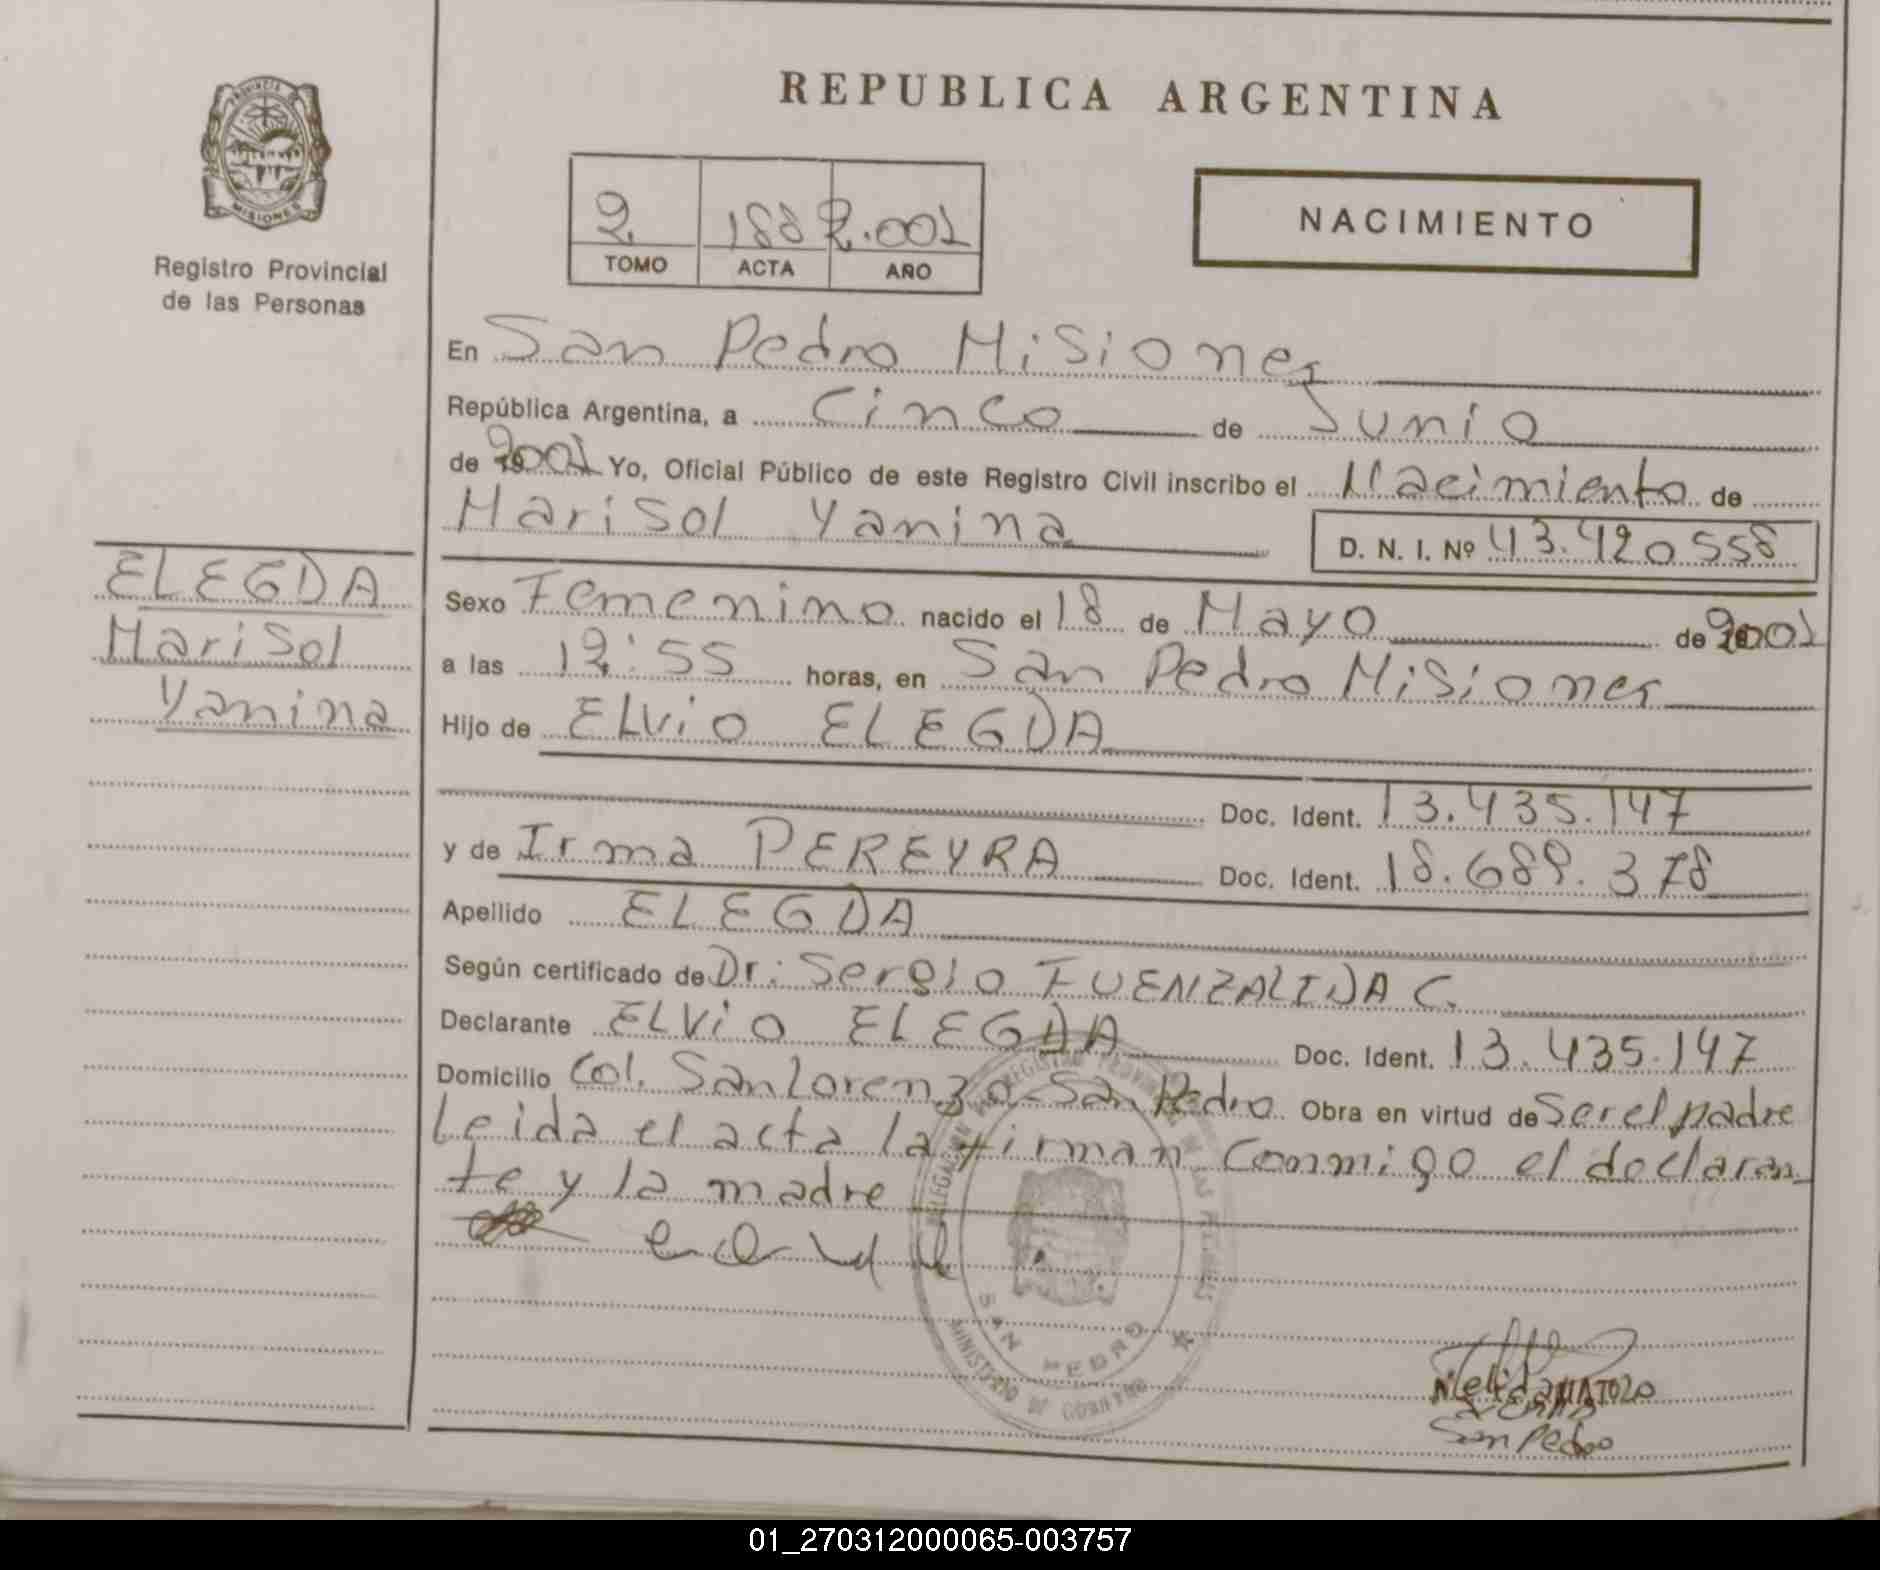 REPUBLICA ARGENTINA
PROVINCIA DE
MISIONES
Registro Provincial
de las Personas
2 188 2.001
TOMO ACTA AÑO
NACIMIENTO
En San Pedro Misiones
República Argentina, a Cinco de Junio
de 2001 Yo, Oficial Público de este Registro Civil inscribo el Nacimiento de
Marisol Yanina D. N. I. Nº 43.420558
ELEGDA
Marisol
Yanina
Sexo Femenino nacido el 18 de Mayo de 2001
a las 12:55 horas, en San Pedro Misiones
Hijo de ELVIO ELEGDA
Doc. Ident. 13.435.147
y de Irma PEREYRA Doc. Ident. 18.689.378
Apellido ELEGDA
Según certificado de Dr: Sergio FUENZALIDA C.
Declarante ELVIO ELEGDA Doc. Ident. 13.435.147
Domicilio Col. San Lorenzo - San Pedro Obra en virtud de Ser el padre
Leida el acta la firman conmigo el declaran
te y la madre
SAN PEDRO
MINISTERIO DE GOBIERNO
San Pedro
01_270312000065-003757